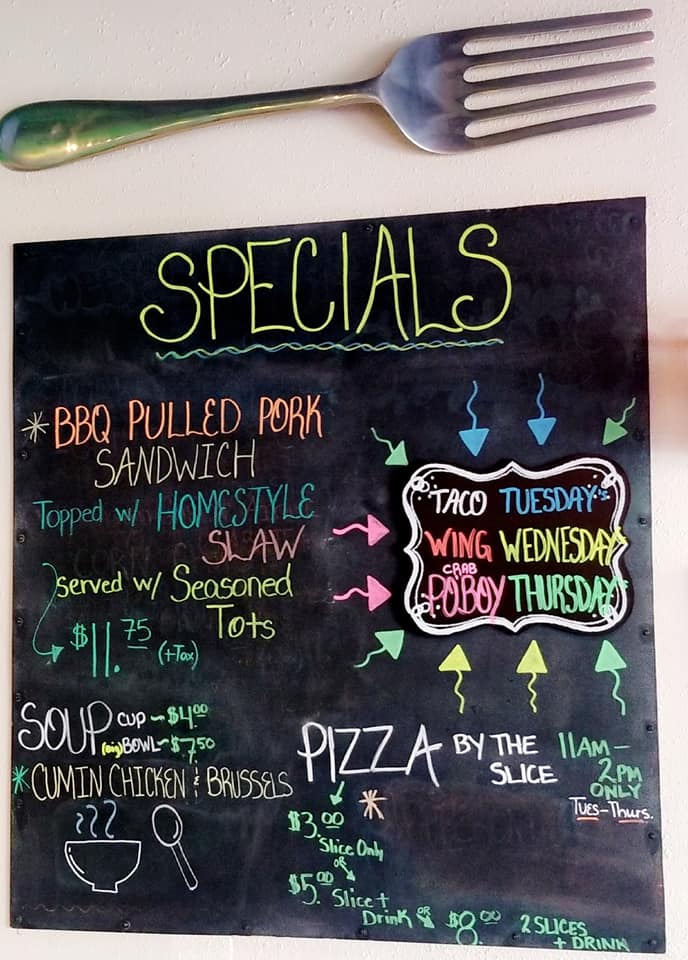 SPECIALS
* BBQ PULLED PORK
SANDWICH
Topped w/ HOMESTYLE
SLAW
Served w/ Seasoned
Tots
$11.75 (+Tax)
TACO TUESDAY's
WING WEDNESDAY's
CRAB
POBOY THURSDAY's
SOUP CUP ~ $4.00
(big) BOWL ~ $7.50
* CUMIN CHICKEN & BRUSSELS
PIZZA BY THE
SLICE
11AM -
2PM
ONLY
Tues - Thurs.
*
$3.00
Slice Only
OR
$5.00 Slice +
Drink OR $8.00 2 SLICES
+ DRINK